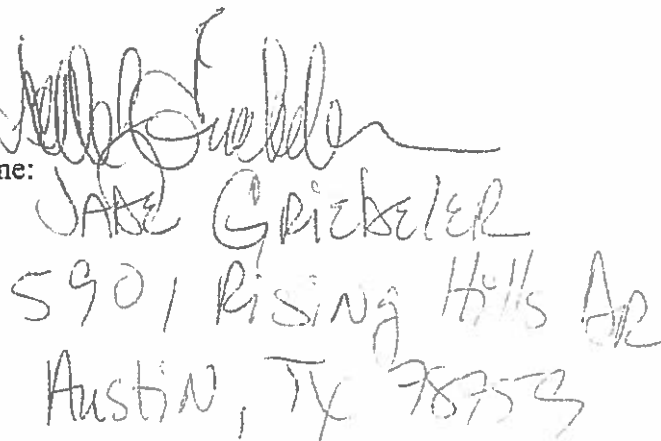 me:
JADE GRIEBELER
5901 Rising Hills DR
Austin, TX 78753